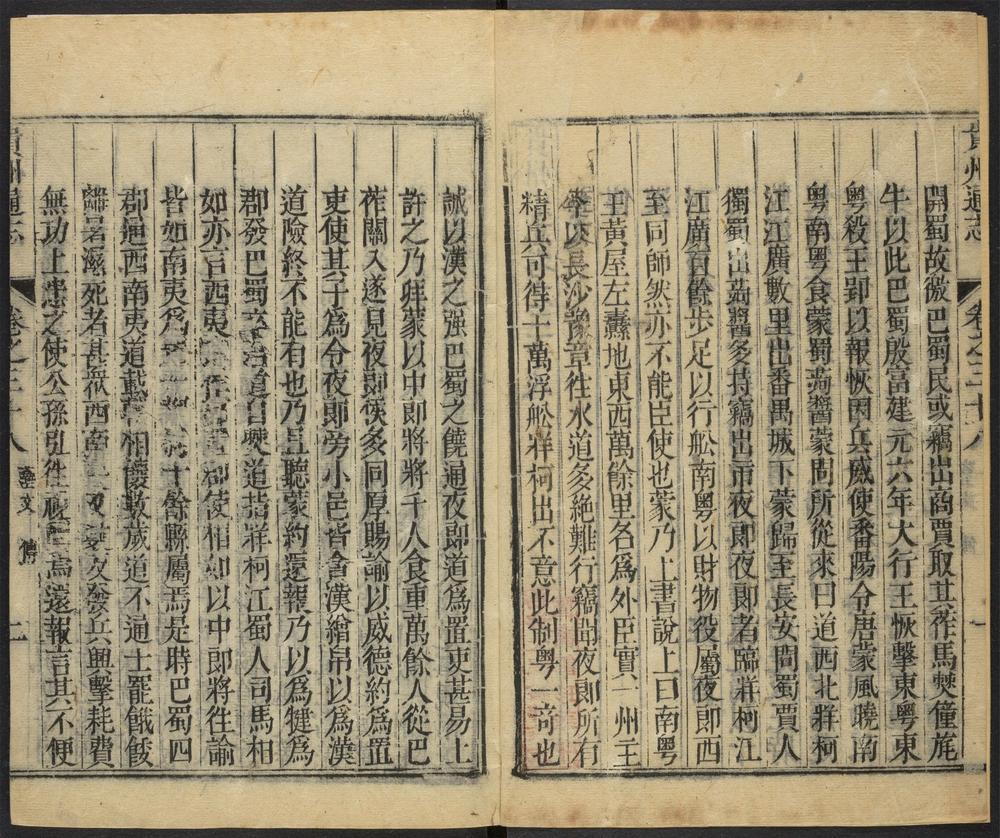 貴州通志
卷之三十八
一
開蜀故徼巴蜀民或竊出商賈取其莋馬僰僮旄
牛以此巴蜀殷富建元六年大行王恢擊東粵東
粵殺王郢以報恢因兵威使番陽令唐蒙風曉南
粵南粵食蒙蜀蒟醬蒙問所從來曰道西北牂柯
江江廣數里出番禺城下蒙歸至長安問蜀賈人
獨蜀出蒟醬多持竊出市夜郎夜郎者臨牂柯江
江廣百餘步足以行船南粵以財物役屬夜郎西
至同師然亦不能臣使也蒙乃上書說上曰南粵
王黃屋左纛地東西萬餘里名為外臣實一州主
今以長沙豫章往水道多絕難行竊聞夜郎所有
精兵可得十萬浮船牂柯出不意此制粵一奇也
誠以漢之强巴蜀之饒通夜郎道為置吏甚易上
許之乃拜蒙以中郎將將千人食重萬餘人從巴
莋關入遂見夜郎侯多同厚賜諭以威德約為置
吏使其子為令夜郎旁小邑皆貪漢繒帛以為漢
道險終不能有也乃且聽蒙約還報乃以為犍為
郡發巴蜀卒治道自僰道指牂柯江蜀人司馬相
如亦言西夷 郎使相如以中郎將往諭
皆如南夷為 十餘縣屬焉是時巴蜀四
郡通西南夷道載 相饟數歲道不通士罷餓餒
離暑濕死者甚眾西南 又數反發兵興擊耗費
無功上患之使公孫弘往視問焉還報言其不便
貴州通志
卷之三十八
藝文 傳
二